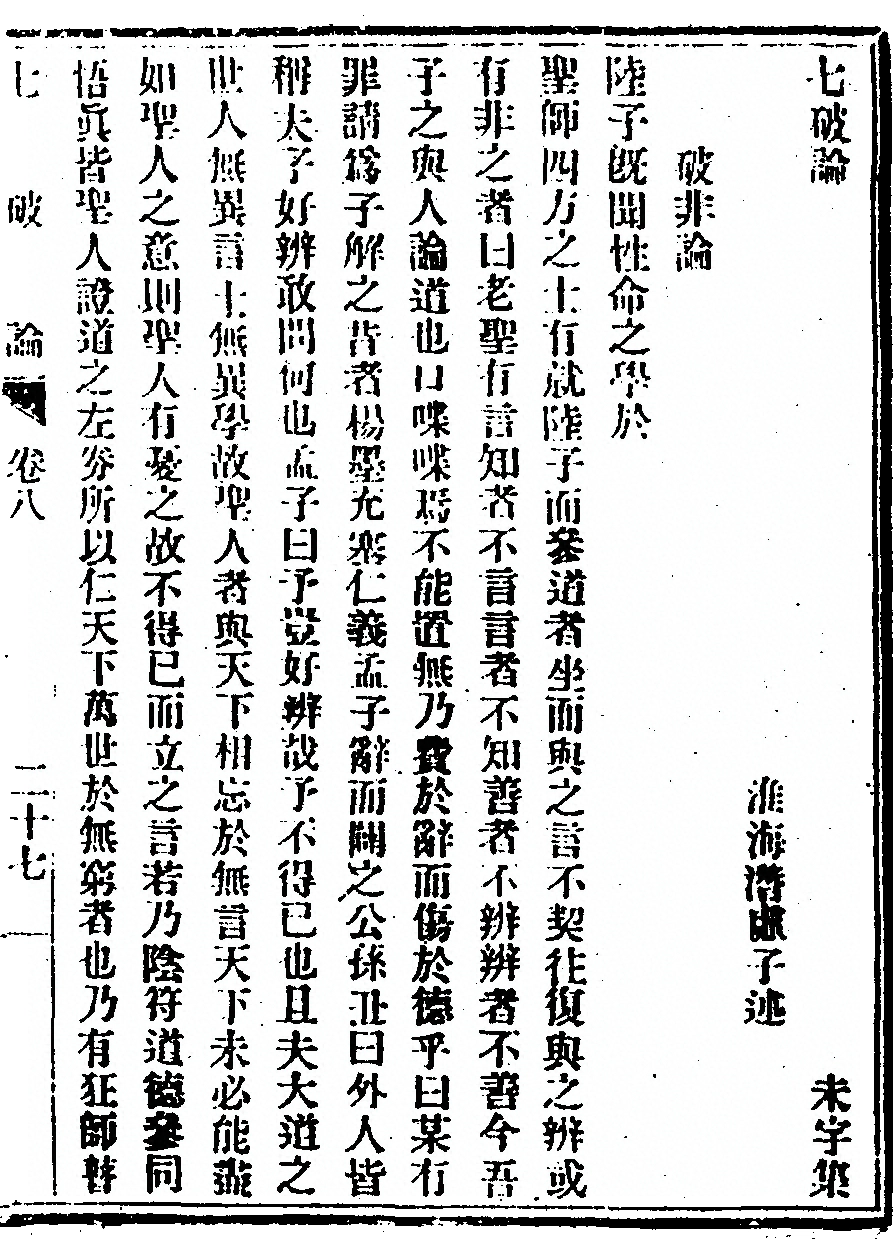 七破論 未字集
淮海潛虛子述
破非論
陸子既聞性命之學於
聖師四方之士有就陸子而參道者坐而與之言不契往復與之辨或
有非之者曰老聖有言知者不言言者不知善者不辨辨者不善今吾
子之與人論道也口喋喋焉不能置無乃費於辭而傷於德乎曰某有
罪請為子解之昔者楊墨充塞仁義孟子辭而闢之公孫丑曰外人皆
稱夫子好辨敢問何也孟子曰予豈好辨哉予不得已也且夫大道之
世人無異言士無異學故聖人者與天下相忘於無言天下未必能盡
如聖人之意則聖人有憂之故不得已而立之言若乃陰符道德參同
悟眞皆聖人證道之左券所以仁天下萬世於無窮者也乃有狂師瞽
七破論 卷八 二十七